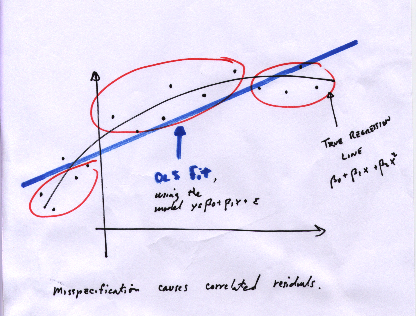 OLS Fit,
using the
model y=β0+β1x+ε
TRUE REGRESSION
LINE
β0+β1x+β2x²
Misspecification causes correlated residuals.